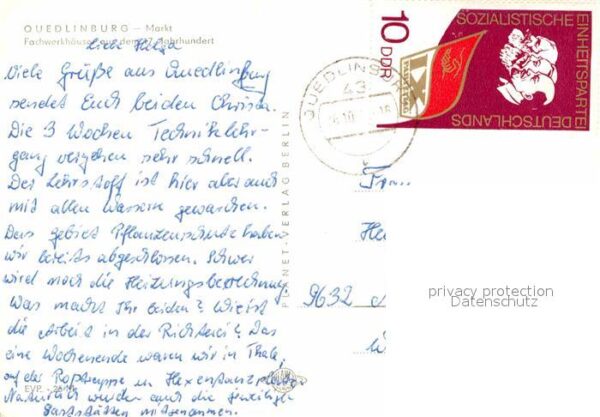 QUEDLINBURG – Markt
Fachwerkhäuser aus dem 17. Jahrhundert
Liebe Helga
Viele Grüße aus Quedlinburg
sendet Euch beiden Christa.
Die 3 Wochen Techniklehr-
gang vergehen sehr schnell.
Der Lehrstoff ist hier aber auch
mit allen Wassern gewaschen.
Das gebiet Pflanzenschutz haben
wir bereits abgeschlossen. Schwer
wird noch die Heizungsberechnung.
Was macht Ihr beiden? Wie ist
die Arbeit in der? Das
eine Wochenende waren wir in Thale,
auf der Roßtrappe u. Hexentanzplatz
Natürlich wurden auch die jeweiligen
Gaststätten mitgenommen.
EVP
PLANET-VERLAG BERLIN
QUEDLINBURG
43
10 DDR
SOZIALISTISCHE
EINHEITSPARTEI
DEUTSCHLANDS
9632
privacy protection
Datenschutz